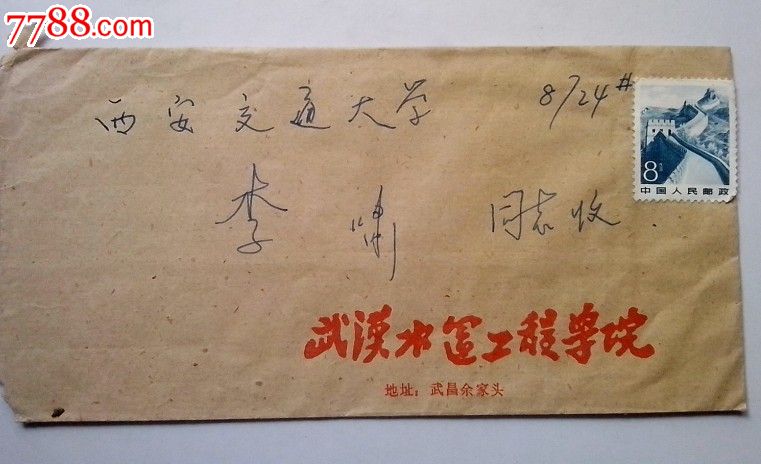 7788.com
西安交通大学 8/24#
8分
中国人民邮政
李 同志收
武汉水运工程学院
地址：武昌余家头